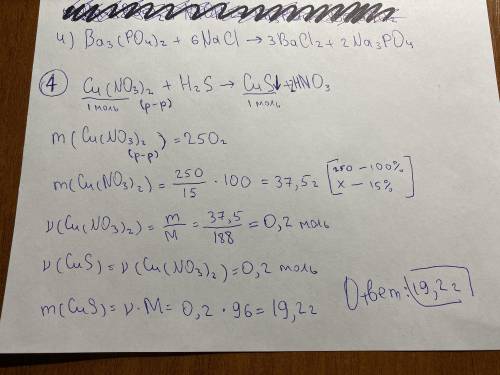 4) Ba₃(PO₄)₂ + 6NaCl → 3BaCl₂ + 2Na₃PO₄
④ Cu(NO₃)₂ + H₂S → CuS↓ + 2HNO₃
1 моль (р-р) 1 моль
m(Cu(NO₃)₂) = 250г
(р-р)
m(Cu(NO₃)₂) = 250/15 · 100 = 37,5г [250 – 100%
x – 15%]
ν(Cu(NO₃)₂) = m/M = 37,5/188 = 0,2 моль
ν(CuS) = ν(Cu(NO₃)₂) = 0,2 моль
m(CuS) = ν · M = 0,2 · 96 = 19,2г
Ответ: 19,2г